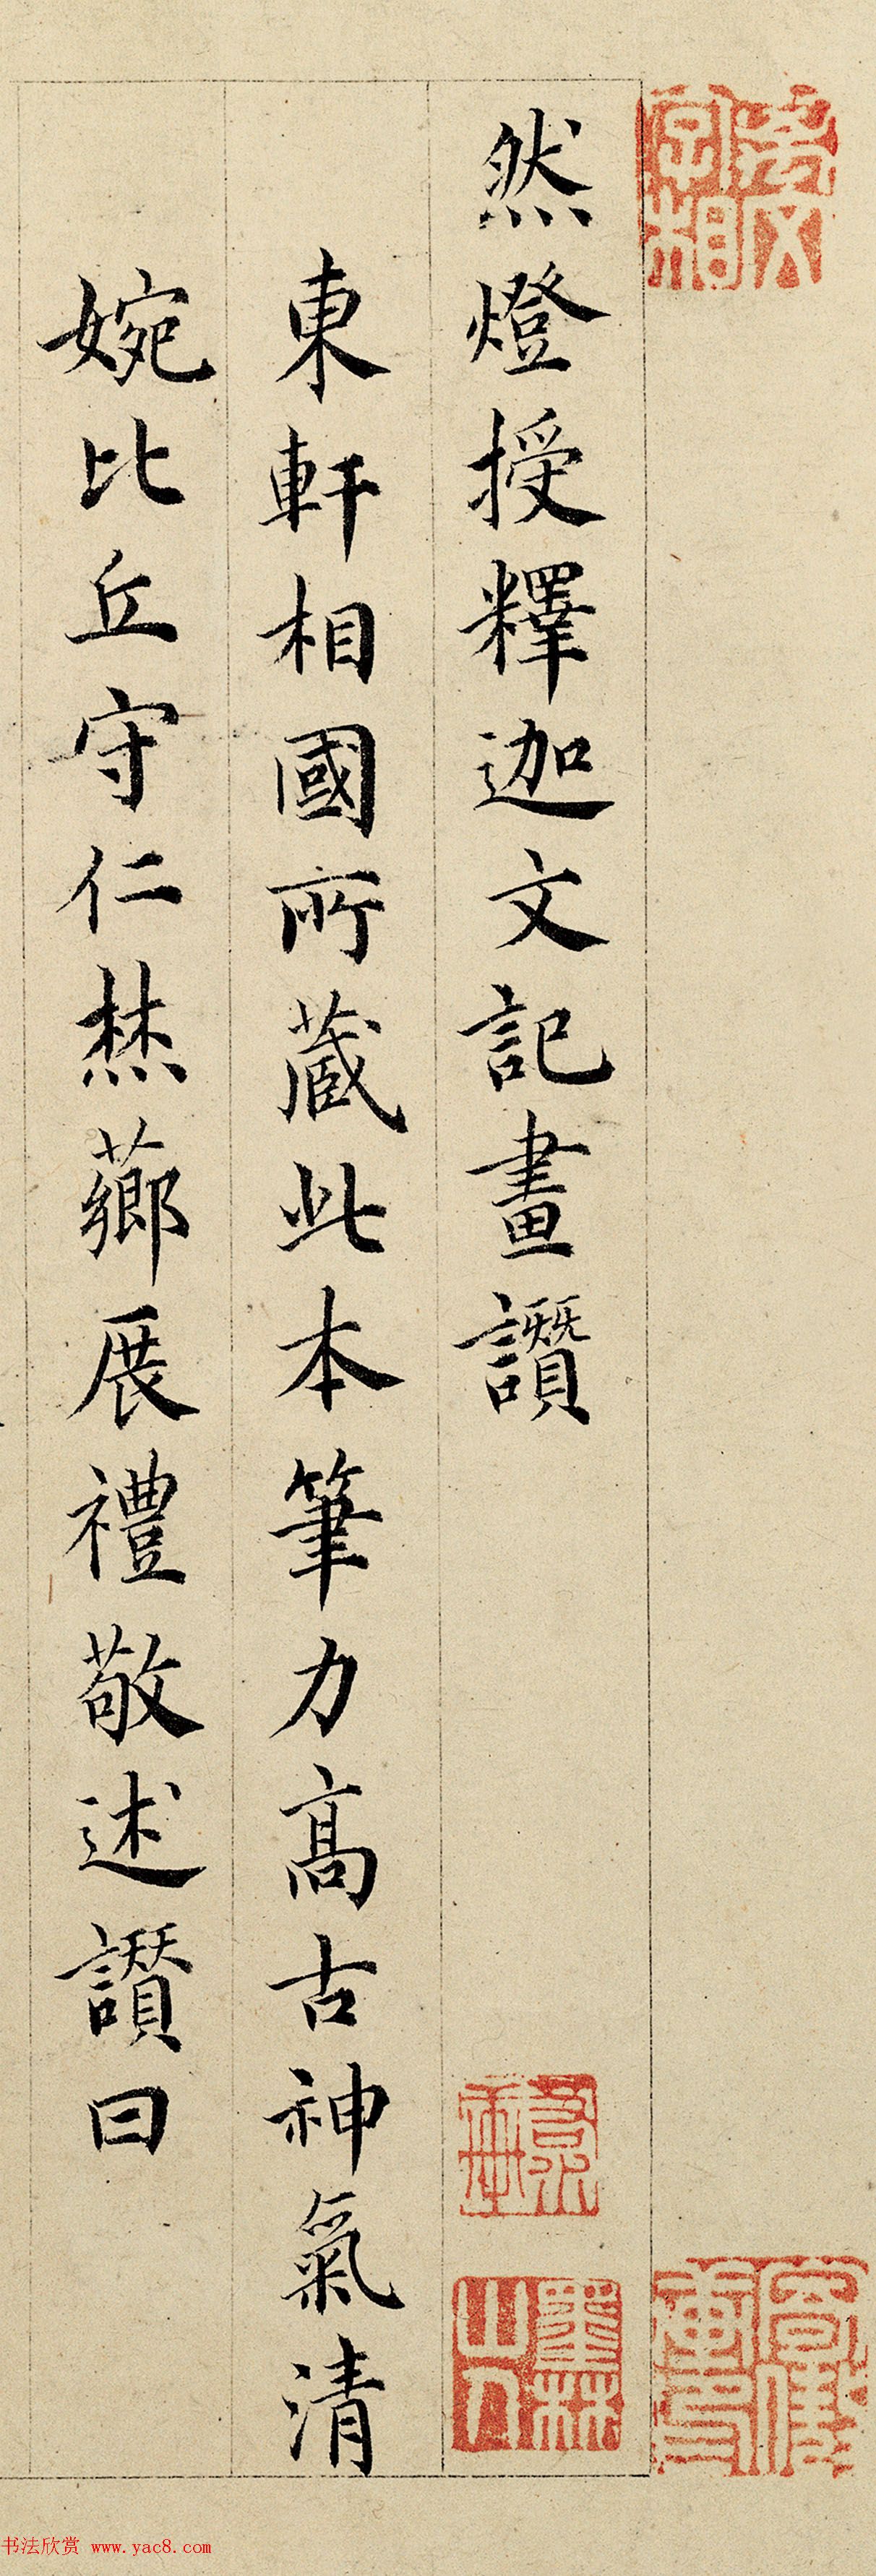 然燈授釋迦文記畫讚
東軒相國所藏此本筆力高古神氣清
婉比丘守仁焚薌展禮敬述讚曰
墨林山人
书法欣赏 www.yac8.com